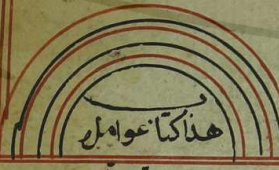 هذا كتاب عوامل